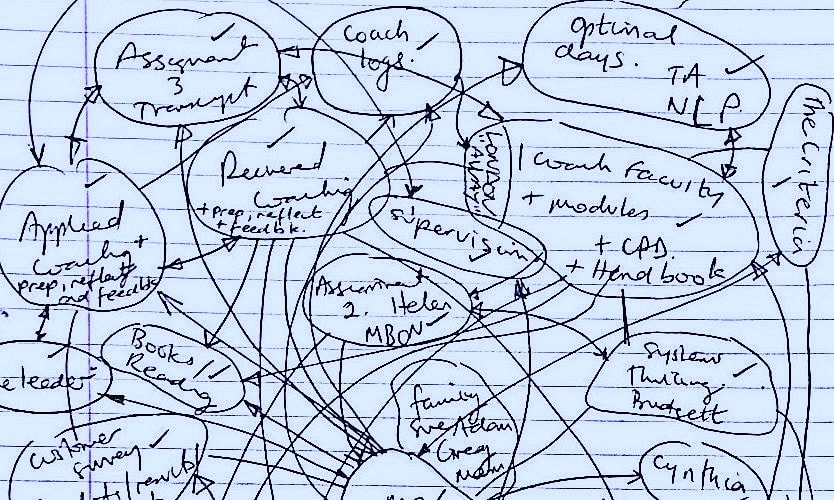 Assignment
3
Transcript
Coach
logs.
optimal
days.
TA
NLP.
The Criteria
Received
Coaching
+ prep, reflect
+ feedbk.
LONDON
1 coach faculty
+ modules
+ CPD.
+ Handbook
Supervision
Applied
Coaching +
prep, reflect
and feedbk
Assignment
2. Helen
MBON
Books/
Reading
System
Thinking
Family
Sue Adam
Greg
Mum
customer
survey
Cynthia